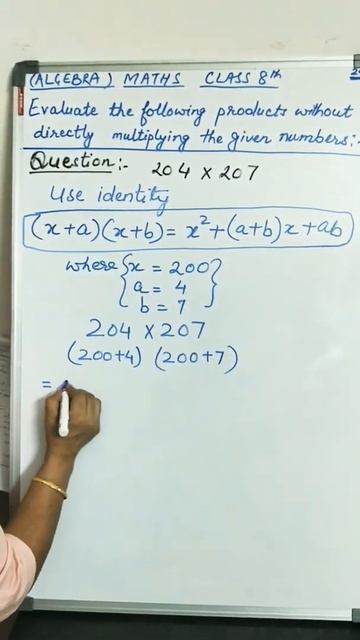 (ALGEBRA) MATHS CLASS 8th
Evaluate the following products without
directly multiplying the given numbers:-
Question:- 204 x 207
Use identity
(x+a)(x+b) = x²+(a+b)x+ab
where {x = 200}
a = 4
b = 7
204 x 207
(200+4) (200+7)
=